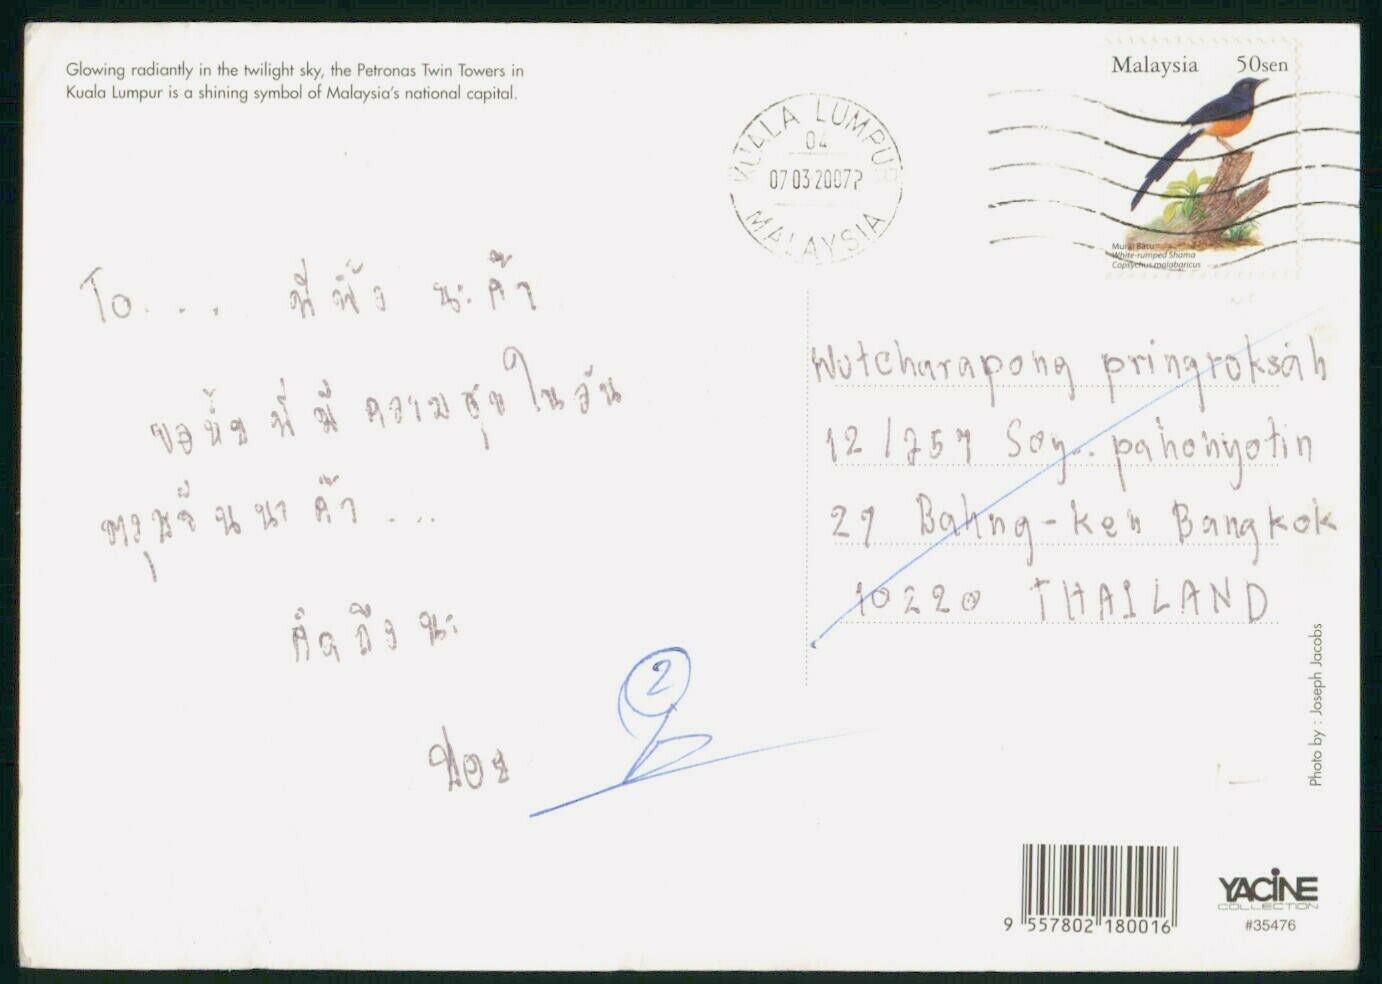 Glowing radiantly in the twilight sky, the Petronas Twin Towers in
Kuala Lumpur is a shining symbol of Malaysia's national capital.
KUALA LUMPUR
04
07032007
MALAYSIA
Malaysia 50sen
Murai Batu
White-rumped Shama
Copsychus malabaricus
To.... พี่ผึ้ง นะค๊า
ขอให้พี่มีความสุขในวัน
ตรุษจีนนาค๊า...
คิดถึงนะ
2
Wutcharapong pringroksah
12/757 Soy.. pahonyotin
27 Bahng-ken Bangkok
10220 THAILAND
Photo by : Joseph Jacobs
9 557802 180016
YACINE
COLLECTION
#35476